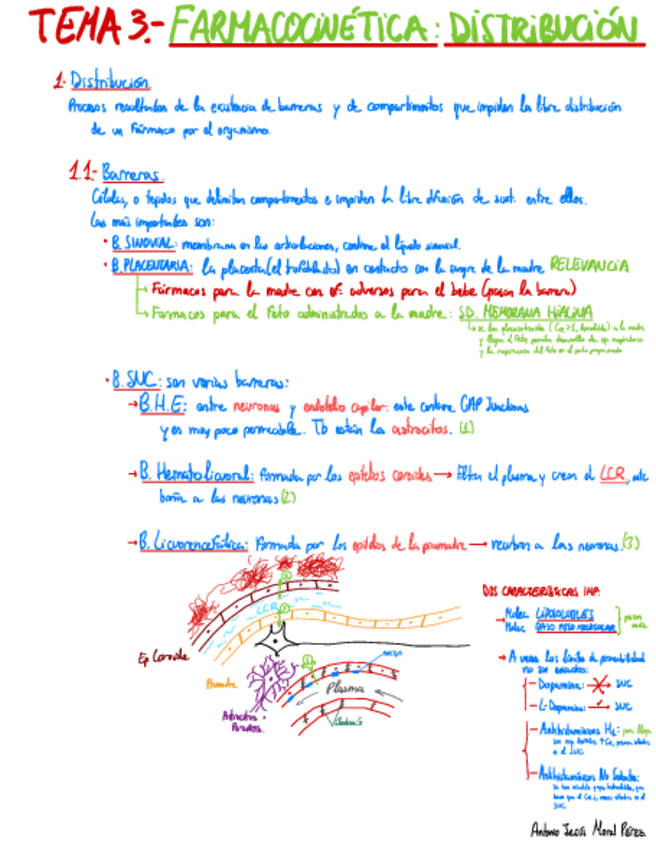 TEMA 3.- FARMACOCINÉTICA: DISTRIBUCIÓN
1- Distribución
Procesos resultantes de la existencia de barreras y de compartimentos que impidan la libre distribución
de un Fármaco por el organismo.
1.1- Barreras.
Células, o tejidos que delimitan compartimentos e impiden la libre difusión de sust. entre ellos.
Las más importantes son:
• B. SINOVIAL: membrana en las articulaciones, contiene el líquido sinovial.
• B. PLACENTARIA: la placenta (el trofoblasto) en contacto con la sangre de la madre RELEVANCIA
→ Fármacos para la madre con ef. adversos para el bebe (pasan la barrera)
→ Farmacos para el Feto administrados a la madre: SD. MEMBRANA HIALINA
a la madre
y llegan al Feto,
y la respiracion del Feto en el parto prematuro
• B. SNC: son varias barreras:
→ B.H.E: entre neuronas y endotelio capilar: este contiene GAP Junctions
y es muy poco permeable. Tb están los astrocitos. (1)
→ B. Hematolicuoral: Formada por los epitelios coroides → Filtra el plasma y crean el LCR, este
baña a las neuronas (2)
→ B. Licuorencefálica: Formada por los epitelios de la piamadre → recubren a las neuronas. (3)
LCR
Ep. Coroide
Piamadre
Astrocitos +
Plasma
DOS CARACTERÍSTICAS IMP:
→ Molec LIPOSOLUBLES
Molec BAJO PESO MOLECULAR
pasan
→ A veces los límites de permeabilidad
no son exactos:
- Dopamina: → SNC
- L-Dopamina: → SNC
- Antihistamínicos H1:
SNC
- Antihistamínicos No Sedantes:
SNC
Antonio Jesús Moral Pérez